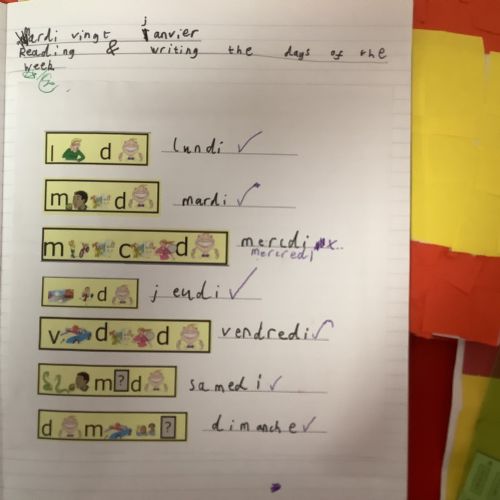 Mardi vingt janvier
Reading & writing the days of the
week
l d lundi
m d mardi
m c d mercdi x
mercredi
d jeudi
v d d vendredi
m ? d samedi
d m ? dimanche